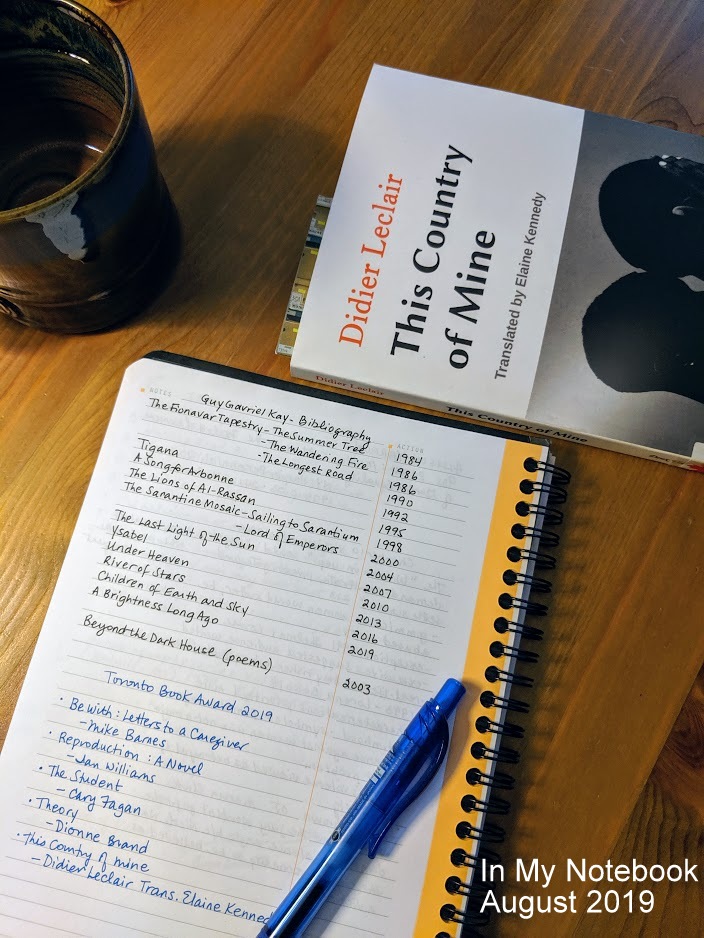 Didier Leclair
This Country
of Mine
Translated by Elaine Kennedy
Didier Leclair
This Country of Mine
NOTES
ACTION
Guy Gavriel Kay - Bibliography
The Fionavar Tapestry - The Summer Tree 1984
- The Wandering Fire 1986
- The Longest Road 1986
Tigana 1990
A Song for Arbonne 1992
The Lions of Al-Rassan 1995
The Sarantine Mosaic - Sailing to Sarantium 1998
- Lord of Emperors 2000
The Last Light of the Sun 2004
Ysabel 2007
Under Heaven 2010
River of Stars 2013
Children of Earth and Sky 2016
A Brightness Long Ago 2019
Beyond the Dark House (poems) 2003
Toronto Book Award 2019
· Be With : Letters to a Caregiver
- Mike Barnes
· Reproduction : A Novel
- Ian Williams
· The Student
- Cary Fagan
· Theory
- Dionne Brand
· This Country of mine
- Didier Leclair Trans. Elaine Kenned
In My Notebook
August 2019